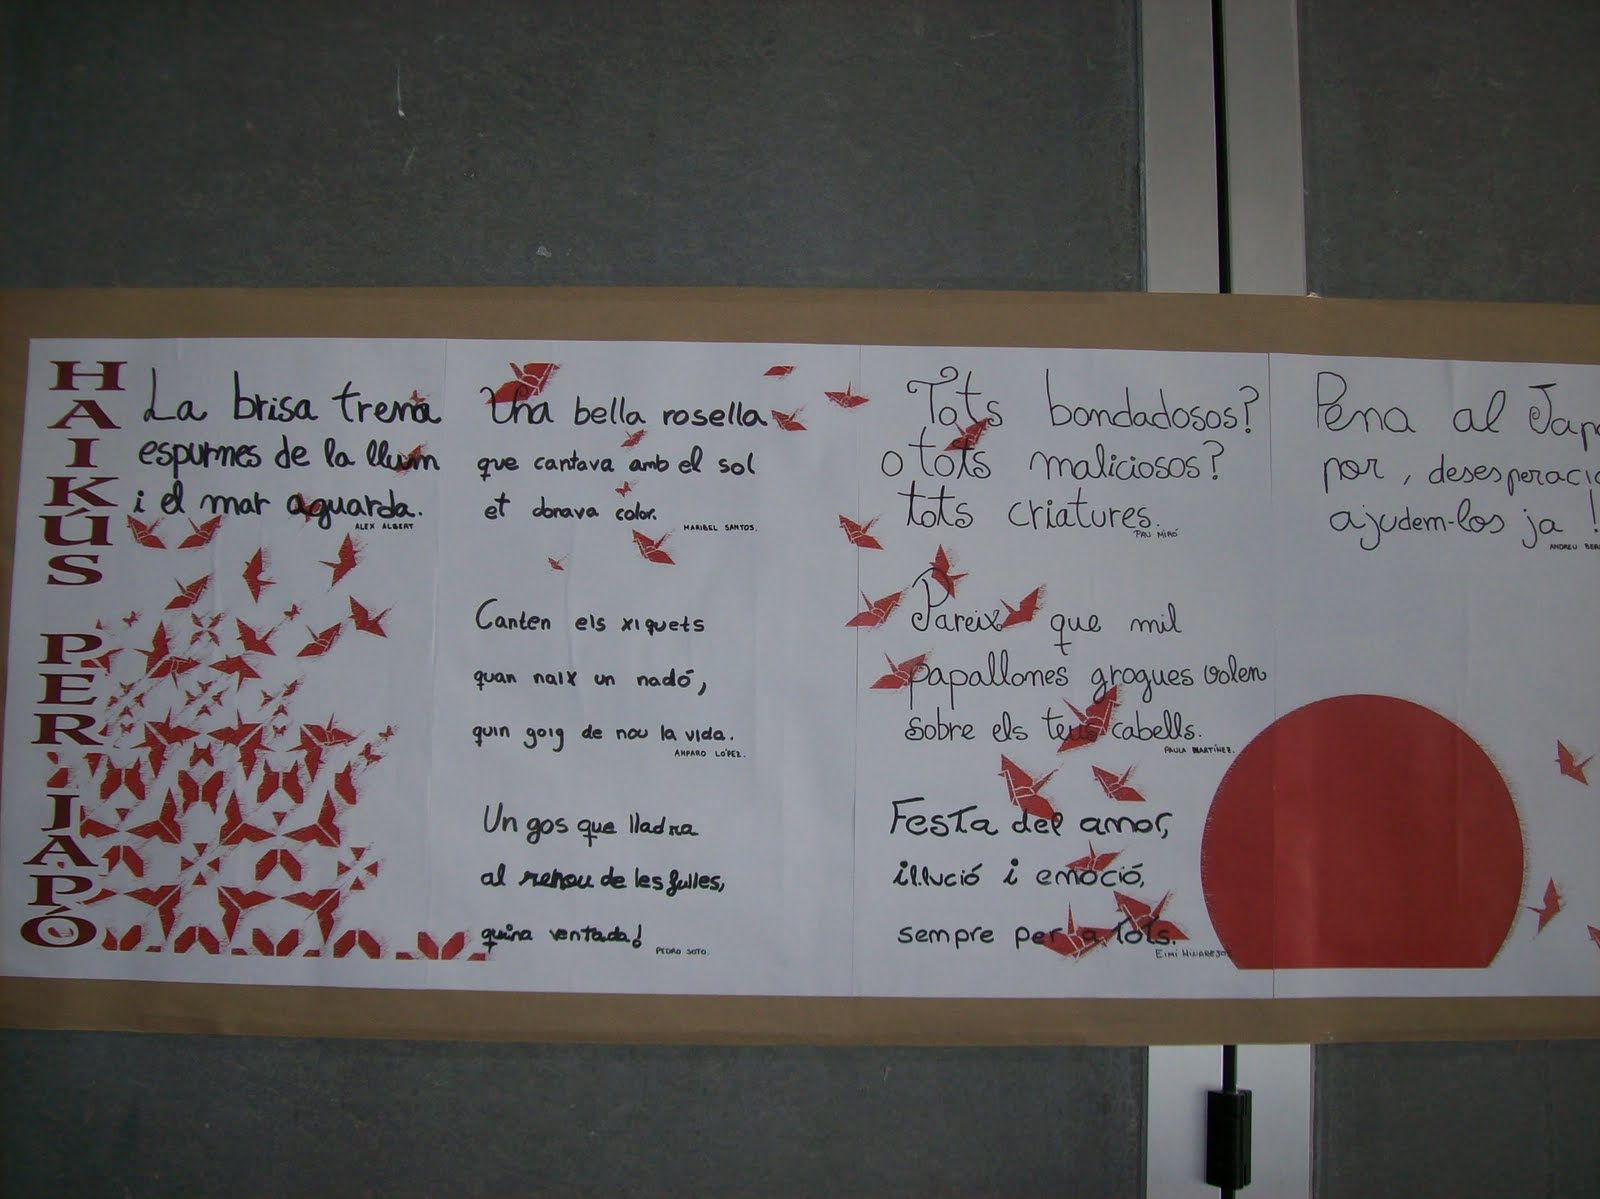 HAIKÚS PER JAPÓ
La brisa trena
espurnes de la llum
i el mar aguarda.
ALEX ALBERT
Una bella rosella
que cantava amb el sol
et donava color.
MARIBEL SANTOS.
Canten els xiquets
quan naix un nadó,
quin goig de nou la vida.
AMPARO LÓPEZ.
Un gos que lladra
al renou de les fulles,
quina ventada!
PEDRO SOTO.
Tots bondadosos?
o tots maliciosos?
tots criatures.
PAU MIRÓ
Pareix que mil
papallones grogues volen
sobre els teus cabells.
PAULA MARTÍNEZ.
Festa del amor,
il.lució i emoció,
sempre per a tots.
EIMI
Pena al Jap
por, desesperaci
ajudem-los ja !
ANDREU